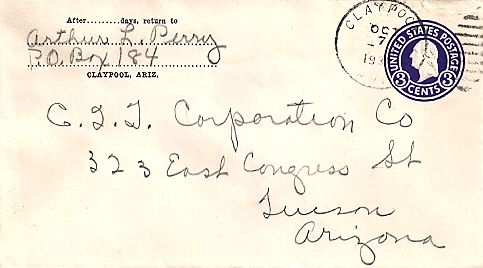 After........days, return to
Arthur L. Perry
P.O. Box 184
CLAYPOOL, ARIZ.
CLAYPOO
OC
7
19
UNITED STATES POSTAGE
3 CENTS 3
C. I. T. Corporation Co
323 East Congress St
Tucson
Arizona